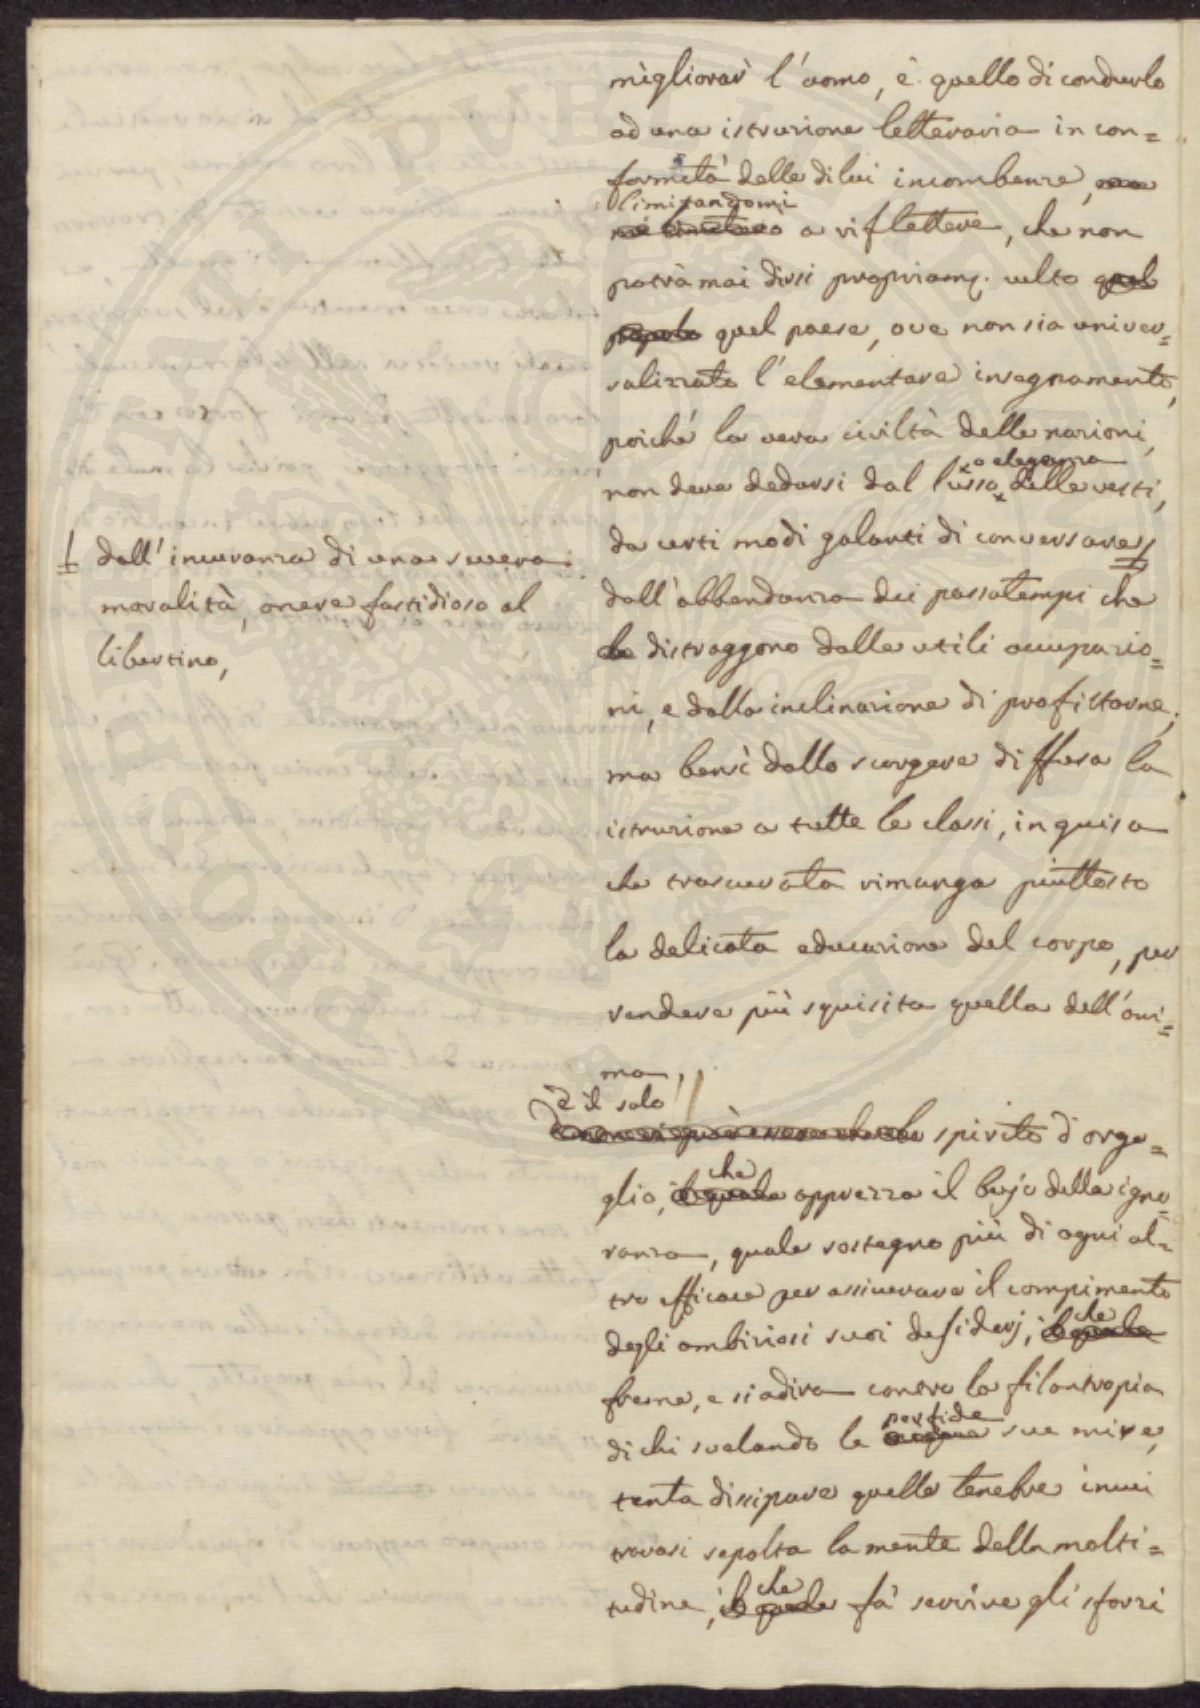 migliorar l'uomo, è quello di condurlo
ad una istruzione letteraria in con=
formità delle di lui incombenze,
limitandomi
a riflettere, che non
potrà mai dirsi propriam. culto quel
popolo quel paese, ove non sia univer=
salizzato l'elementare insegnamento,
poiché la vera civiltà delle nazioni,
o eleganza
non deve dedursi dal lusso delle vesti,
da certi modi galanti di conversare,
dall'incuranza di una severa
moralità, onere fastidioso al
libertino,
dall'abbondanza dei passatempi che
le distraggono dalle utili occupazio=
ni, e dalla inclinazione di profittarne;
ma bensì dallo scorgere diffusa la
istruzione a tutte le classi, in guisa
che trascurata rimanga piuttosto
la delicata educazione del corpo, per
rendere più squisita quella dell'ani=
ma,
È il solo
spirito d'orgo=
che
glio, il quale apprezza il bujo della igno=
ranza, quale sostegno più di ogni al=
tro efficace per assicurare il compimento
che
degli ambiziosi suoi desiderj, il quale
freme, e si adira contro la filantropia
perfide
di chi svelando le sue mire,
tenta dissipare quelle tenebre in cui
trovasi sepolta la mente della molti=
che
tudine, il quale fà servire gli sforzi